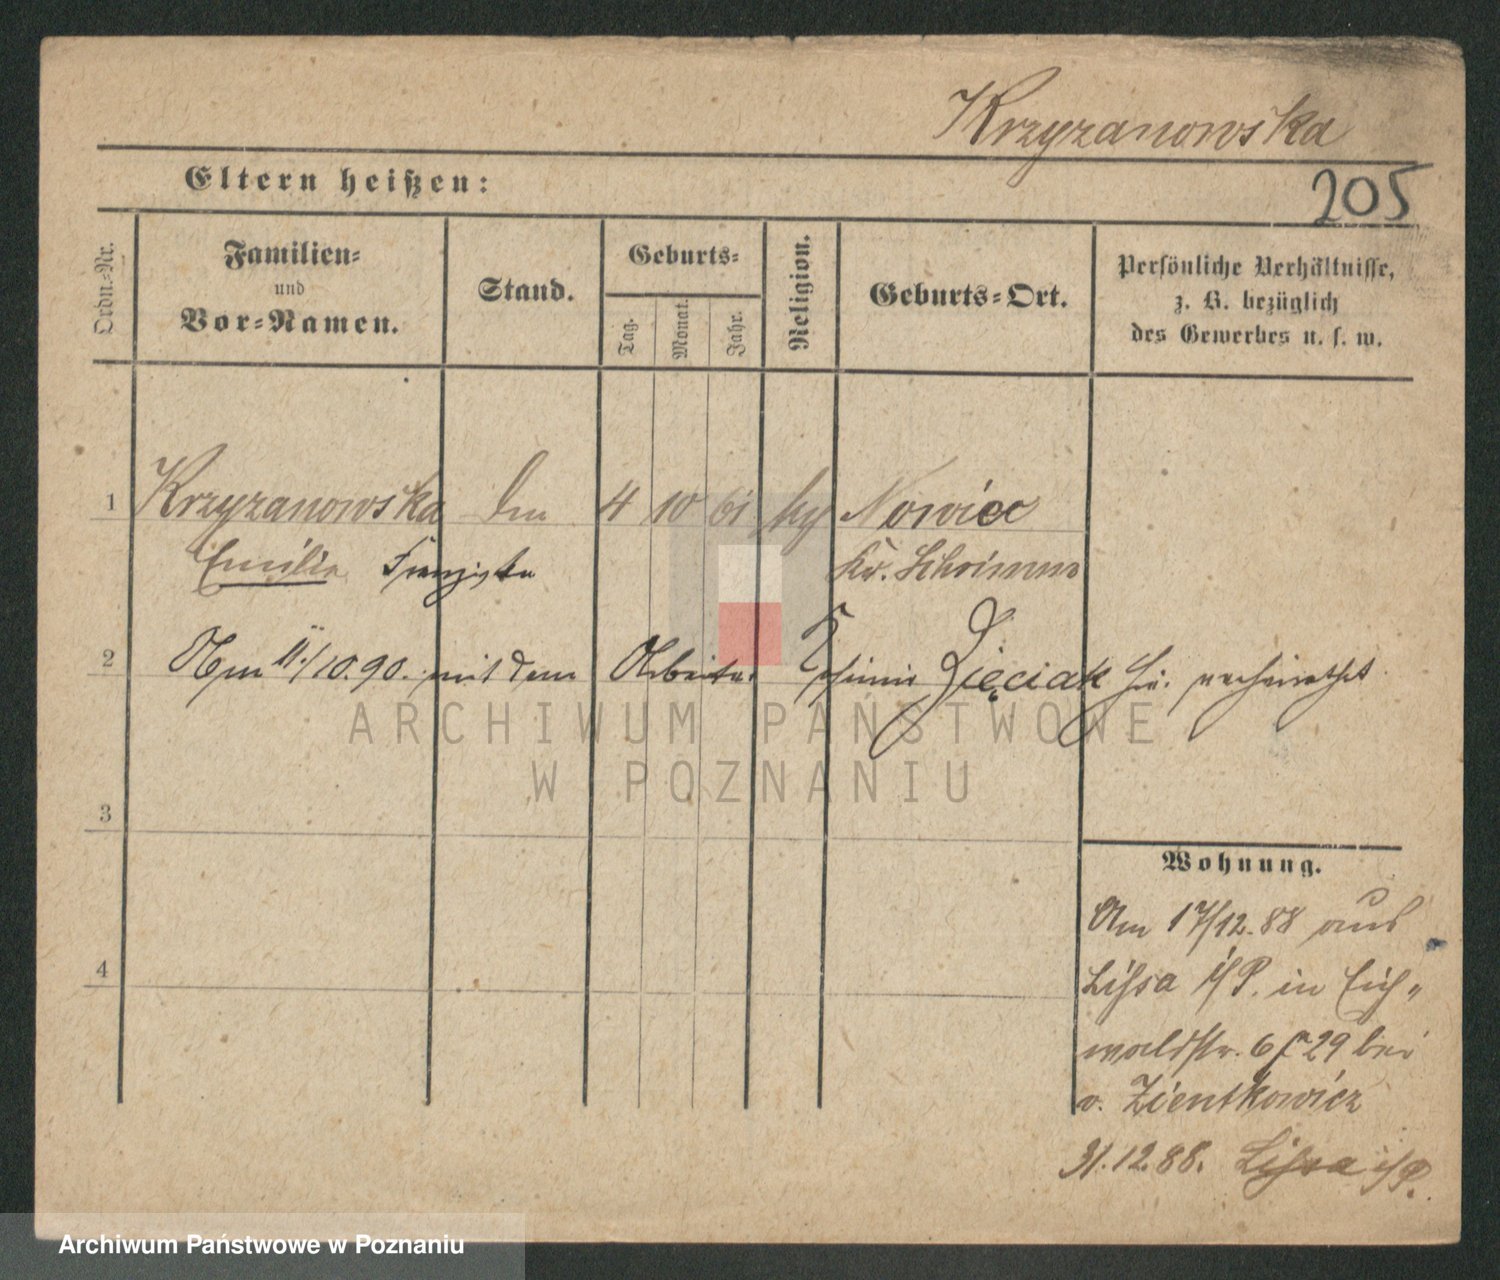 Krzyzanowska
Eltern heißen:
205
Ordn.-Nr.
Familien-
und
Vor-Namen.
Stand.
Geburts-
Tag.
Monat.
Jahr.
Religion.
Geburts-Ort.
Persönliche Verhältnisse,
z. B. bezüglich
des Gewerbes u. s. w.
1 Krzyzanowska 4 10 61 Nowiec
Emilie Franziska Kr. Schrimm
2 Am 11/10.90. mit dem Arbeiter Dięciak verheirathet
ARCHIWUM PAŃSTWOWE
W POZNANIU
3
Wohnung.
Am 17/12.88 aus
4 Lissa i/P. in Eich„
waldstr. 29 bei
v. Zientkowicz
31.12.88. Lissa i/P.
Archiwum Państwowe w Poznaniu